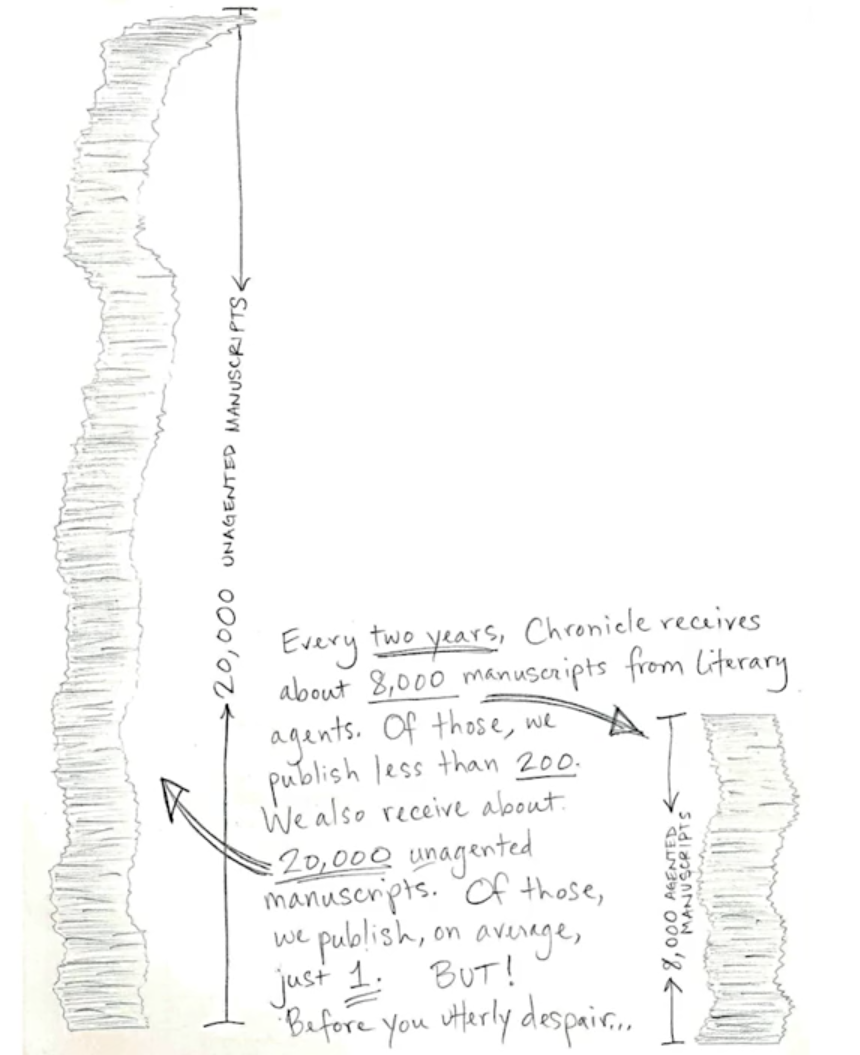 20,000 UNAGENTED MANUSCRIPTS
Every two years, Chronicle receives
about 8,000 manuscripts from literary
agents. Of those, we
publish less than 200.
We also receive about
20,000 unagented
manuscripts. Of those,
we publish, on average,
just 1. BUT!
Before you utterly despair...
8,000 AGENTED
MANUSCRIPTS